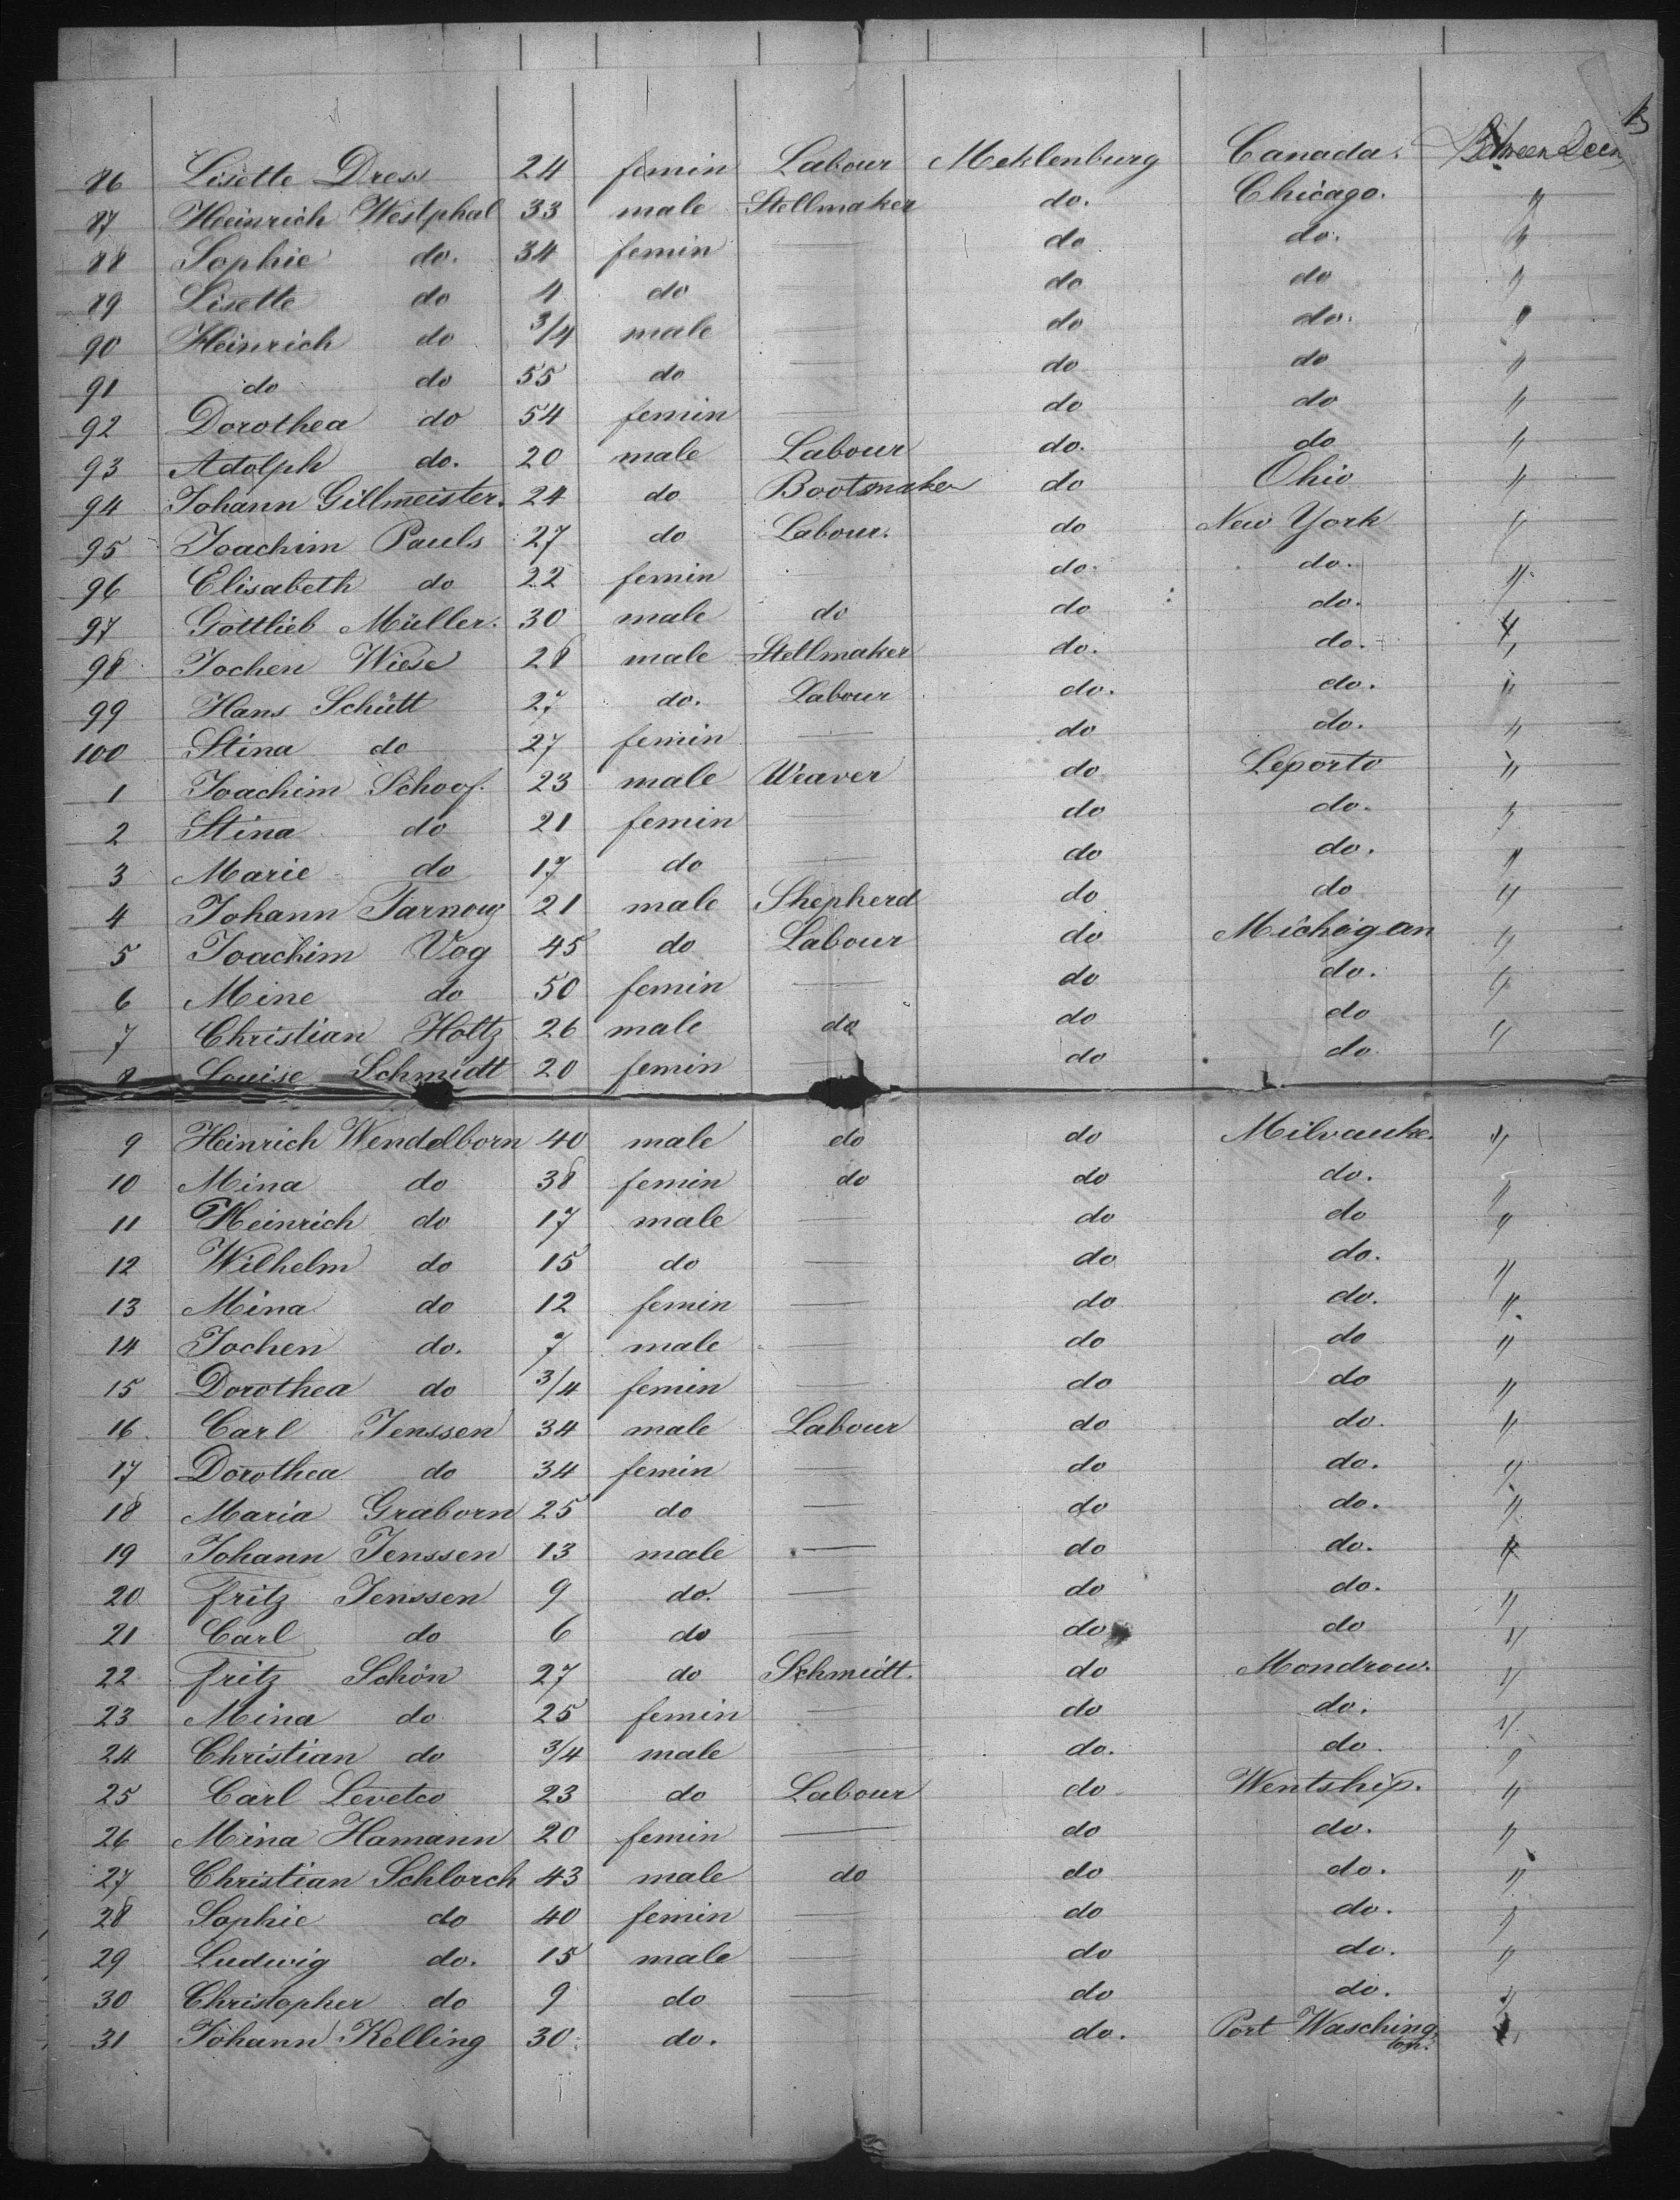 86 Lisette Drew 24 femin Labour Meklenburg Canada. Between
87 Heinrich Westphal 33 male Stellmaker do. Chicago. "
88 Sophie do. 34 femin — do do. "
89 Lisette do 4 do — do do "
90 Heinrich do 3/4 male — do do. "
91 do do 55 do — do do "
92 Dorothea do 54 femin — do do "
93 Adolph do. 20 male Labour do. do "
94 Johann Gillmeister. 24 do Bootsmaker do Ohio "
95 Joachim Pauls 27 do Labour. do New York "
96 Elisabeth do 22 femin do. do. "
97 Gottlieb Müller. 30 male do do do. "
98 Jochen Wiese 28 male Stellmaker do. do. "
99 Hans Schütt 27 do. Labour do. do. "
100 Stina do 27 femin — do do. "
1 Joachim Schoof. 23 male Weaver do Leporto "
2 Stina do 21 femin — do do. "
3 Marie do 17 do — do do. "
4 Johann Tarnow 21 male Shepherd do do "
5 Joachim Vog 45 do Labour do Michigan "
6 Mine do 50 femin — do do. "
7 Christian Holtz 26 male do do do "
8 Louise Schmidt 20 femin do do
9 Heinrich Wendelborn 40 male do do Milvauke. "
10 Mina do 38 femin do do do. "
11 Heinrich do 17 male — do do "
12 Wilhelm do 15 do — do do. "
13 Mina do 12 femin — do do. "
14 Jochen do. 7 male — do do "
15 Dorothea do 3/4 femin — do do "
16. Carl Jenssen 34 male Labour do do. "
17 Dorothea do 34 femin — do do. "
18 Maria Graborn 25 do — do do. "
19 Johann Jenssen 13 male — do do. "
20 Fritz Jenssen 9 do. — do do. "
21 Carl do 6 do — do do "
22 Fritz Schön 27 do Schmidt. do Mondrow. "
23 Mina do 25 femin — do do. "
24 Christian do 3/4 male — do. do. "
25 Carl Levetco 23 do Labour do Wentship. "
26 Mina Hamann 20 femin — do do. "
27 Christian Schlorch 43 male do do do. "
28 Sophie do 40 femin — do do. "
29 Ludwig do. 15 male — do do. "
30 Christopher do 9 do — do do. "
31 Johann Kelling 30. do. do. Port Wasching "
ton.